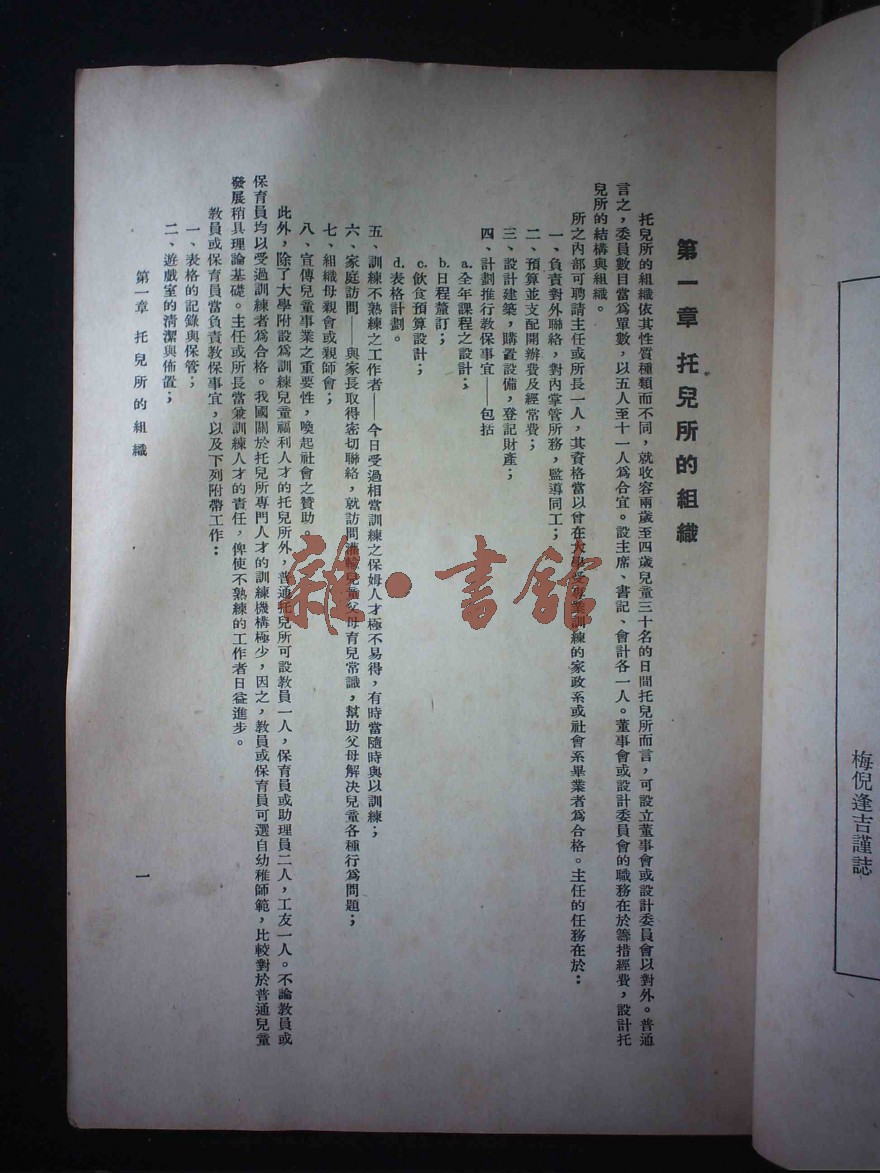 梅倪逢吉謹誌
第一章 托兒所的組織
托兒所的組織依其性質種類而不同，就收容兩歲至四歲兒童三十名的日間托兒所而言，可設立董事會或設計委員會以對外。普通
言之，委員數目當爲單數，以五人至十一人爲合宜。設主席、書記、會計各一人。董事會或設計委員會的職務在於籌措經費，設計托
兒所的結構與組織。
所之內部可聘請主任或所長一人，其資格當以曾在大學受專業訓練的家政系或社會系畢業者爲合格。主任的任務在於：
一、負責對外聯絡，對內掌管所務，監導同工；
二、預算並支配開辦費及經常費；
三、設計建築，購置設備，登記財產；
四、計劃推行教保事宜——包括
a.全年課程之設計；
b.日程釐訂；
c.飲食預算設計；
d.表格計劃。
五、訓練不熟練之工作者——今日受過相當訓練之保姆人才極不易得，有時當隨時與以訓練；
六、家庭訪問——與家長取得密切聯絡，就訪問灌輸兒童父母育兒常識，幫助父母解決兒童各種行爲問題；
七、組織母親會或親師會；
八、宣傳兒童事業之重要性，喚起社會之贊助。
此外，除了大學附設爲訓練兒童福利人才的托兒所外，普通托兒所可設教員一人，保育員或助理員二人，工友一人。不論教員或
保育員均以受過訓練者爲合格。我國關於托兒所專門人才的訓練機構極少，因之，教員或保育員可選自幼稚師範，比較對於普通兒童
發展稍具理論基礎。主任或所長當兼訓練人才的責任，俾使不熟練的工作者日益進步。
教員或保育員當負責教保事宜，以及下列附帶工作：
一、表格的記錄與保管；
二、遊戲室的清潔與佈置；
第一章 托兒所的組織
一
雜·書館